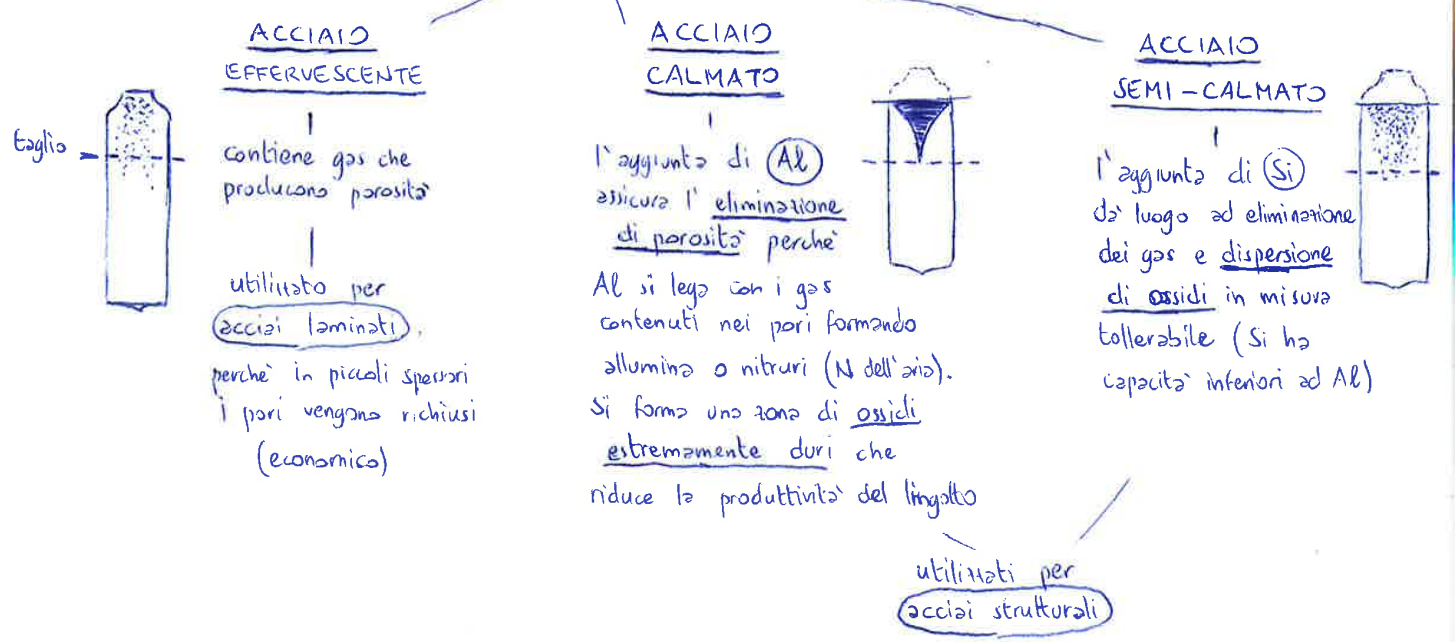 ACCIAIO
EFFERVESCENTE
taglio
contiene gas che
producono porosità
utilizzato per
acciai laminati.
perchè in piccoli spessori
i pori vengono richiusi
(economico)
ACCIAIO
CALMATO
l'aggiunta di Al
assicura l'eliminazione
di porosità perchè
Al si lega con i gas
contenuti nei pori formando
allumina o nitruri (N dell'aria).
Si forma una zona di ossidi
estremamente duri che
riduce la produttività del lingotto
ACCIAIO
SEMI-CALMATO
l'aggiunta di Si
dà luogo ad eliminazione
dei gas e dispersione
di ossidi in misura
tollerabile (Si ha
capacità inferiori ad Al)
utilizzati per
acciai strutturali